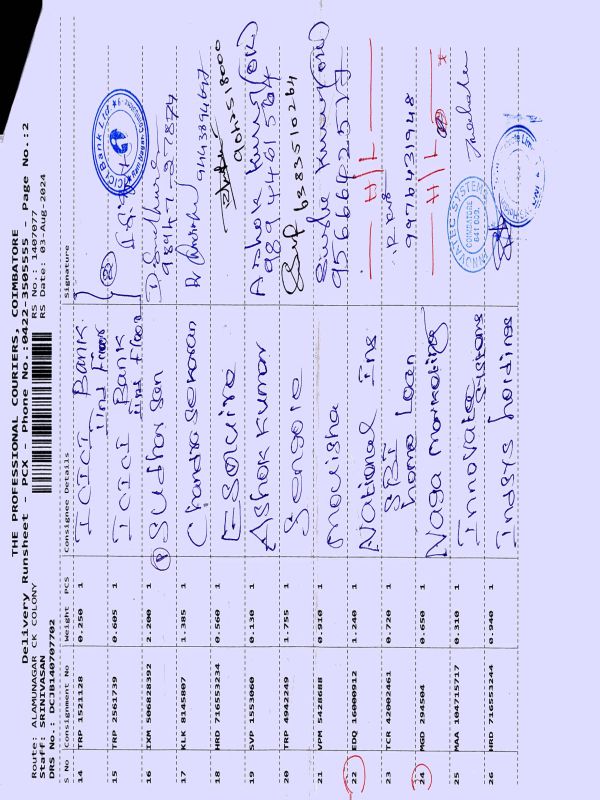 THE PROFESSIONAL COURIERS, COIMBATORE
Delivery Runsheet - PCX - Phone No.:0422-3505555 Page No.:2
Route: ALAMUNAGAR CK COLONY RS No.: 1407077
Staff: SRINIVASAN RS Date: 03-Aug-2024
DRS No.: DCJB140707702
S No Consignment No Weight PCS Consignee Details Signature
14 TRP 1521128 0.250 1 ICICI Bank
IInd Floor
15 TRP 2561739 0.605 1 ICICI Bank
IInd Floor
16 IXM 506828392 2.200 1 Sudharsan
17 KLK 8145807 1.385 1 Chandrasekaran
18 HRD 716553234 0.560 1 9012518000
19 SVP 1553060 0.130 1 Ashok Kumar Ashok Kumar
9894461564
20 TRP 4942249 1.755 1 6383510264
21 VPM 5428688 0.910 1 Mouisha
22 EDQ 16000912 1.240 1 National Ins H/L
23 TCR 42002461 0.720 1 SBI
Home Loan 9976431948
24 MGD 294504 0.650 1 Naga Marketing H/L
25 MAA 104715717 0.310 1 Innovatec
Systems
COIMBATORE
641 009
26 HRD 716553244 0.940 1 Indsys holdings